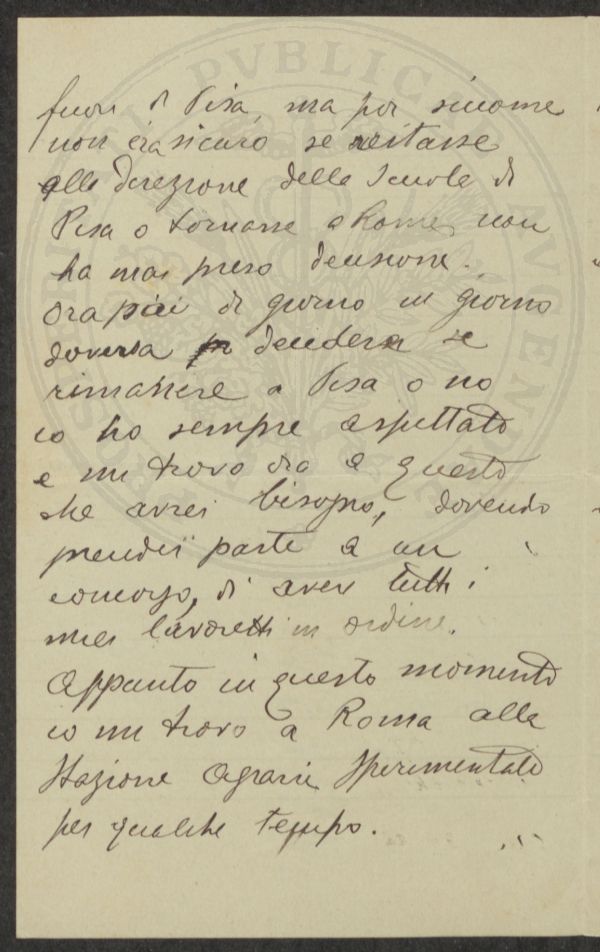 fuori di Pisa, ma poi siccome
non era sicuro se restasse
alla Direzione della Scuola di
Pisa o tornasse a Roma, non
ha mai preso decisione.
Ora più di giorno in giorno
doveva decidere se
rimanere a Pisa o no
io ho sempre aspettato
e mi trovo ora a questo
che avrei bisogno, dovendo
prender parte a un
concorso, di aver tutti i
miei lavoretti in ordine.
Appunto in questo momento
io mi trovo a Roma alla
Stazione Agraria Sperimentale
per qualche tempo.